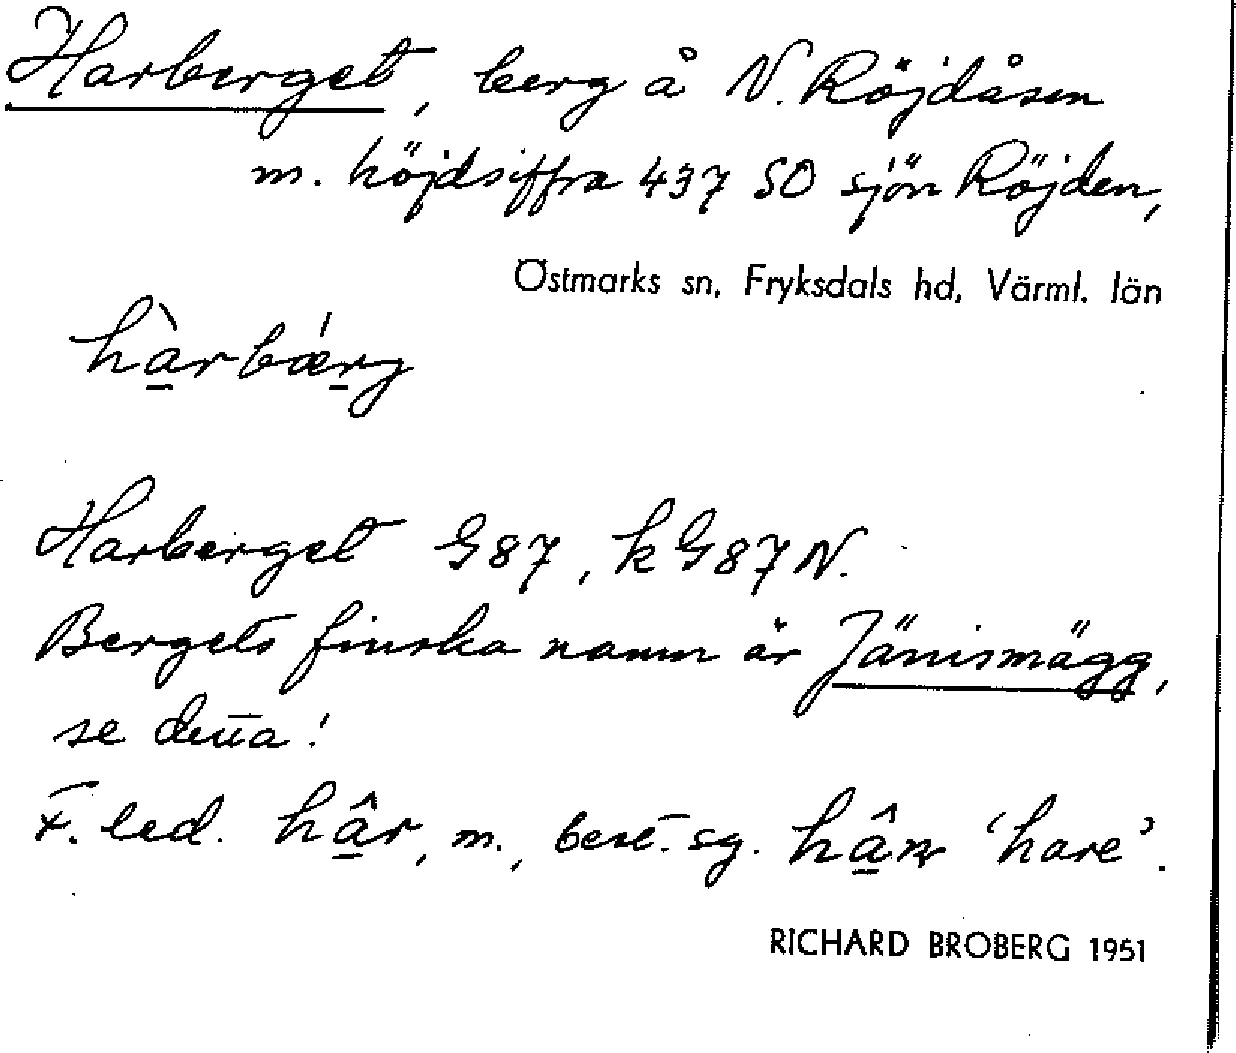 Harberget, berg å N. Röjdåsen
m. höjdsiffra 437 SO sjön Röjden,
Östmarks sn, Fryksdals hd, Värml. län
hàrbǽrg
Harberget G87, kG87N.
Bergets finska namn är Jänismägg,
se detta!
F. led. hâr, m., best. sg. hân 'hare'.
RICHARD BROBERG 1951